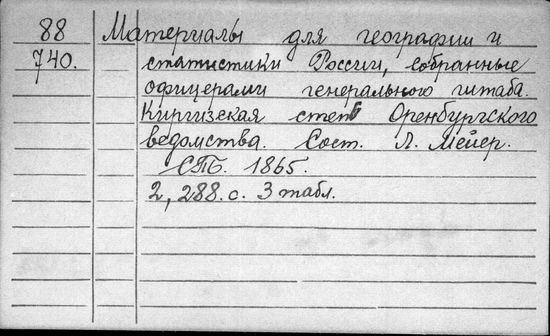 88 Материалы для географии и
740. статистики России, собранные
офицерами генерального штаба.
Киргизская степь Оренбургского
ведомства. Сост. Л. Мейер.
СПБ. 1865.
2, 288. с. 3 табл.